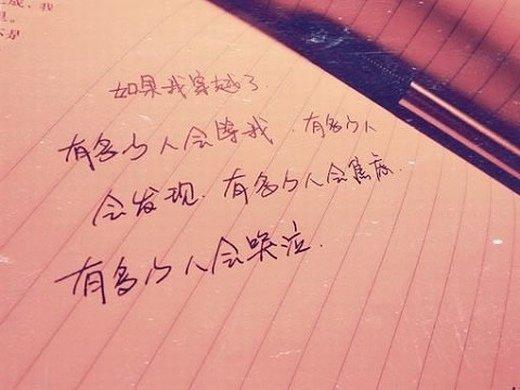 成，我
里。
不是
如果我穿越了.
有多少人会陪我.有多少人
会发现.有多少人会焦虑.
有多少人会哭泣.